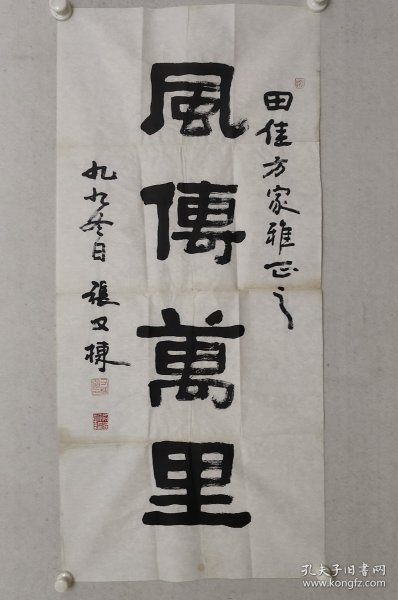 田佳方家雅正之
風傳萬里
九九冬日 張又棟
孔夫子旧书网
www.kongfz.com